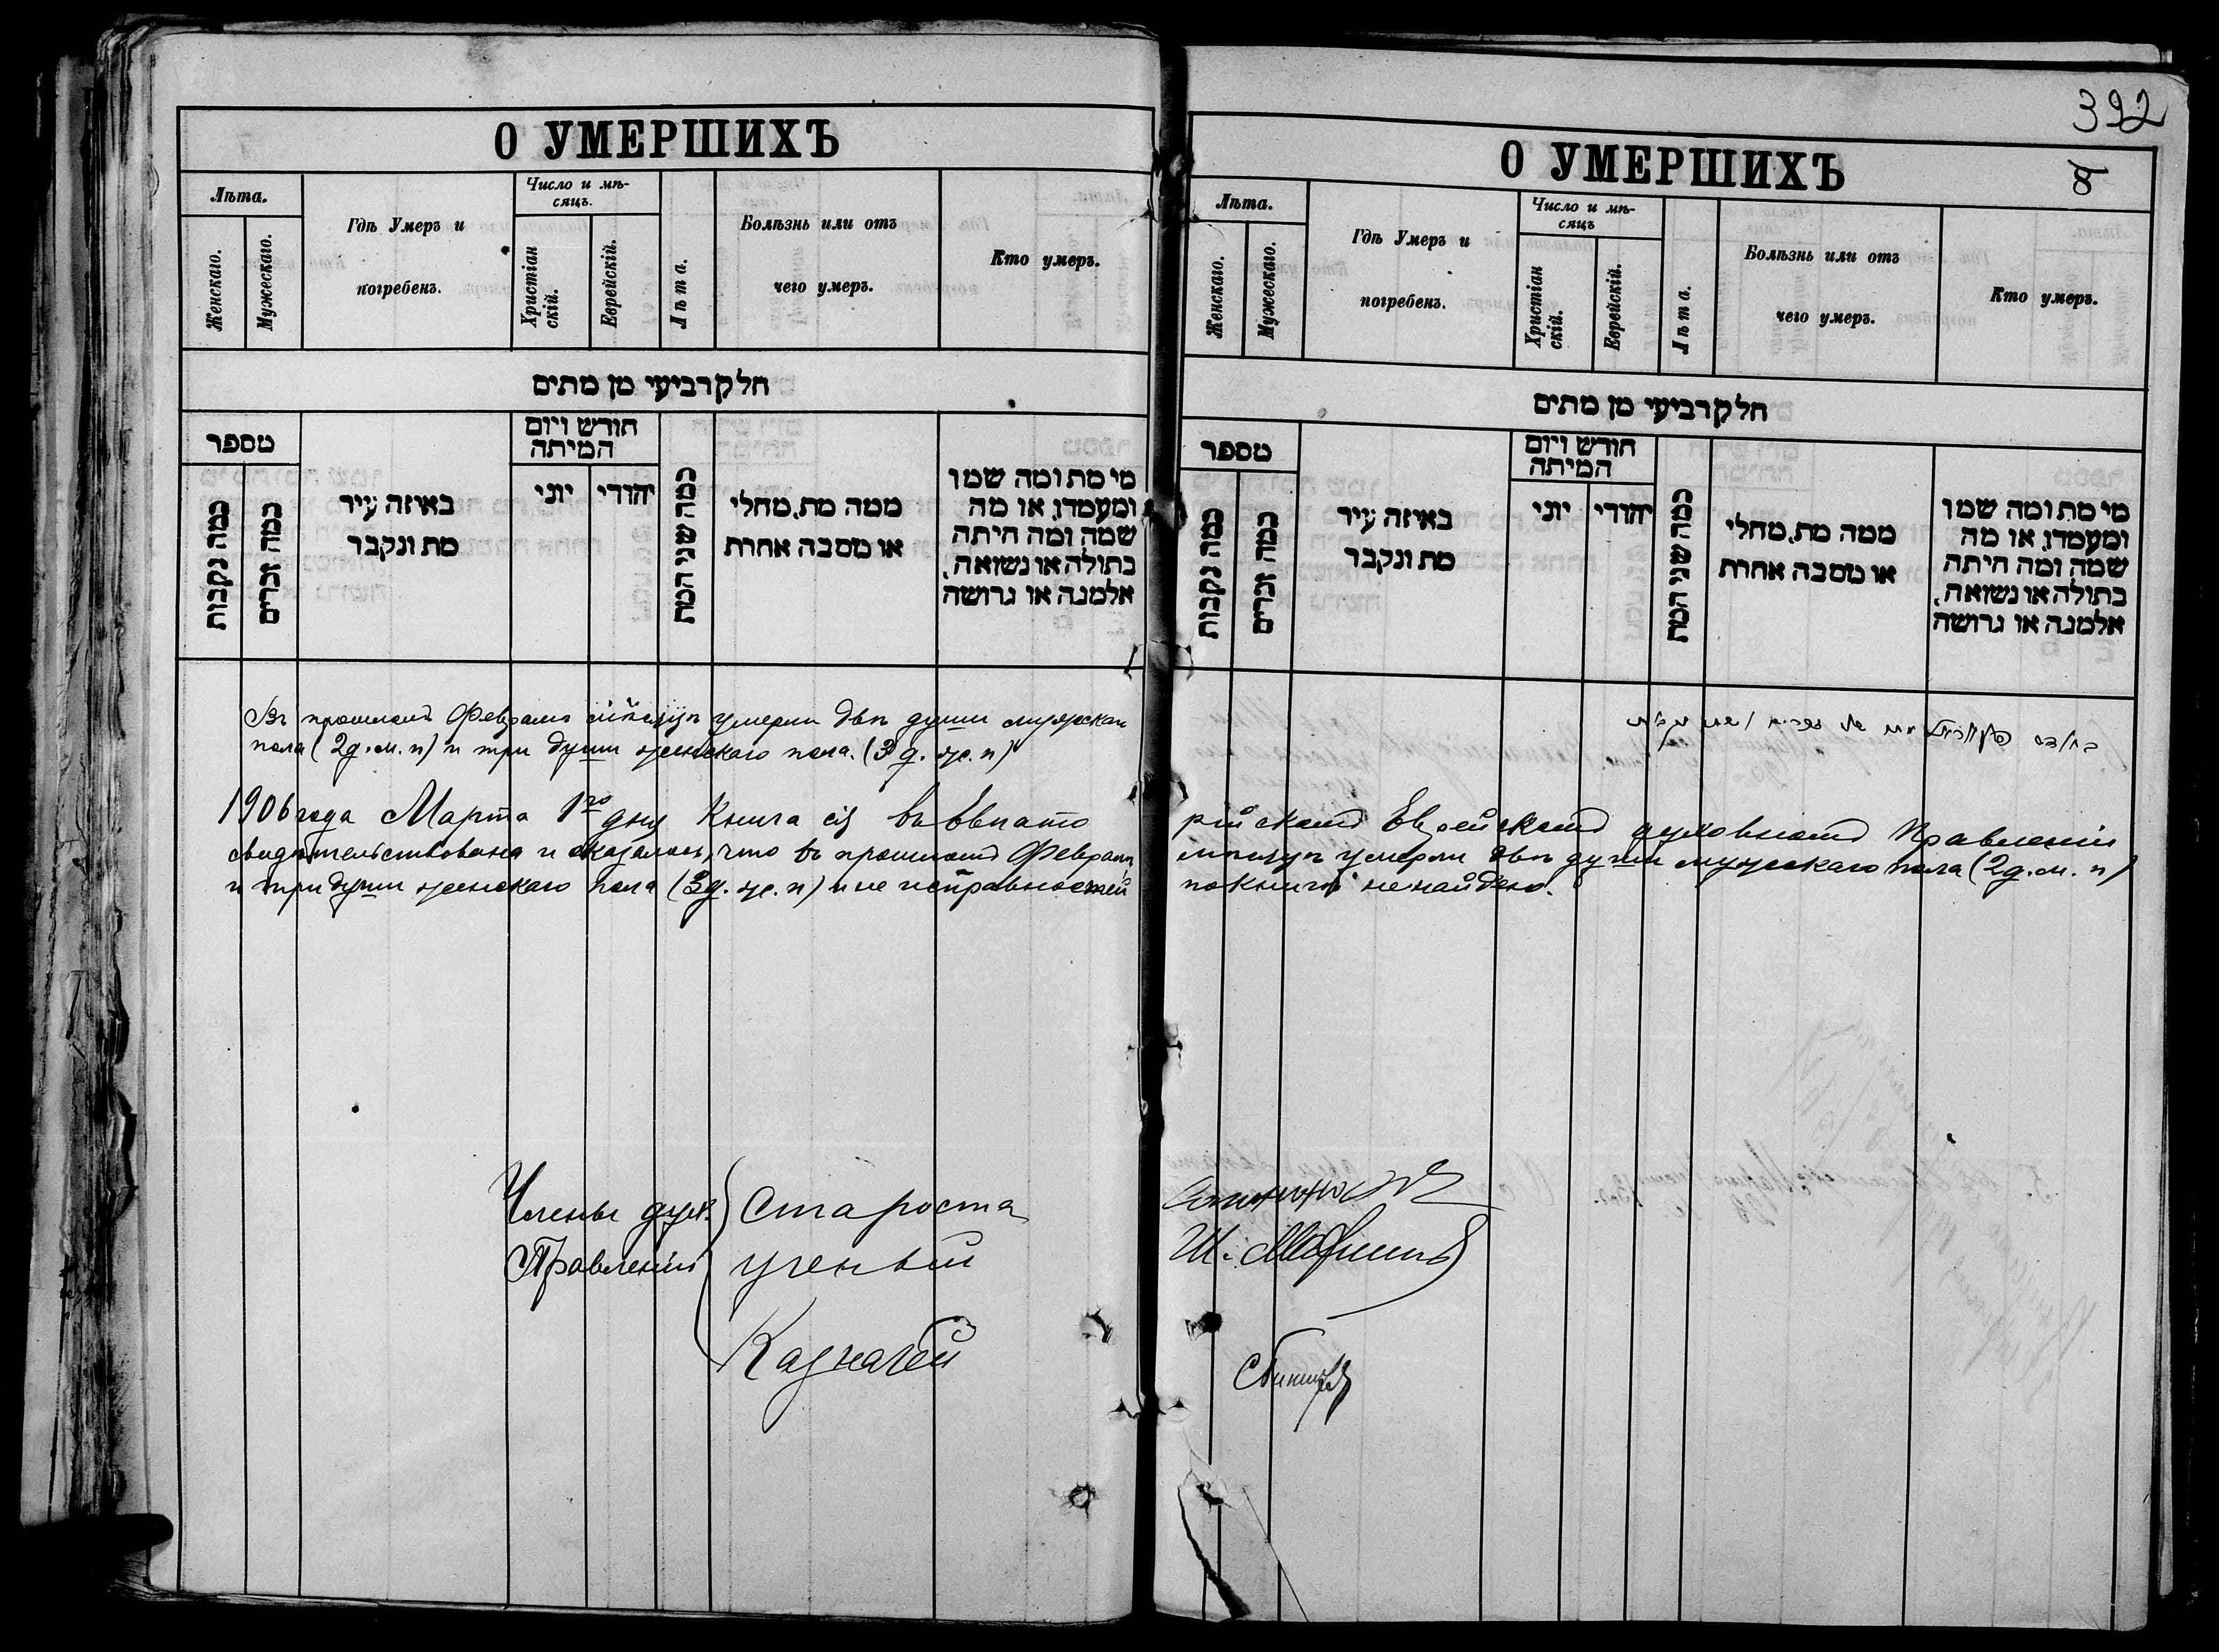 О УМЕРШИХЪ
Лѣта.
Женскаго.
Мужескаго.
Гдѣ Умеръ и
погребенъ.
Число и мѣ-
сяцъ.
Христіан
скій.
Еврейскій.
Лѣта.
Болѣзнь или отъ
чего умеръ.
Кто умеръ.
חלק רביעי מן מתים
מספר
כמה נקבות
כמה זכרים
באיזה עיר
מת ונקבר
חודש ויום
המיתה
יוני
יהודי
כמה שני המת
ממה מת, מחלי
או מסבה אחרת
מי מת ומה שמו
ומעמדו, או מה
שמה ומה היתה
בתולה או נשואה,
אלמנה או גרושה
Въ прошломъ Февралѣ мѣсяцѣ умерли двѣ души мужскаго
пола (2 д. м. п) и три души женскаго пола. (3 д. ж. п)
1906 года Марта 1го дня Книга сія въ
свидѣтельствована и оказалось, что въ прошломъ Февралѣ
и три души женскаго пола (3 д. ж. п) и не исправностей
Члены дух.
Правленія
Староста
Ученый
Казначей
392
8
О УМЕРШИХЪ
Лѣта.
Женскаго.
Мужескаго.
Гдѣ Умеръ и
погребенъ.
Число и мѣ-
сяцъ
Христіан
скій.
Еврейскій.
Лѣта.
Болѣзнь или отъ
чего умеръ.
Кто умеръ.
חלק רביעי מן מתים
מספר
כמה נקבות
כמה זכרים
באיזה עיר
מת ונקבר
חודש ויום
המיתה
יוני
יהודי
כמה שני המת
ממה מת, מחלי
או מסבה אחרת
מי מת ומה שמו
ומעמדו, או מה
שמה ומה היתה
בתולה או נשואה,
אלמנה או גרושה
рійскомъ Еврейскомъ духовномъ Правленіи
мѣсяцѣ умерли двѣ души мужескаго пола (2 д. м. п)
по книгѣ не найдено.
Ш.